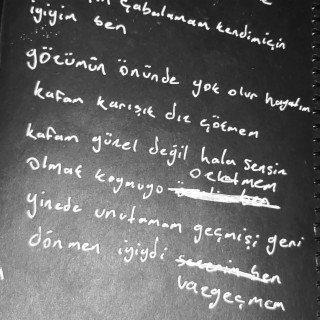 çabalamam kendimiçin
iyiyim ben
gözümün önünde yok olur hayatım
kafam karışık diz çökmem
kafam güzel değil hala sensin
olmak koymuyo
ürkütmem
yinede unutamam geçmişi geri
dönmen iyiydi
vazgeçmem